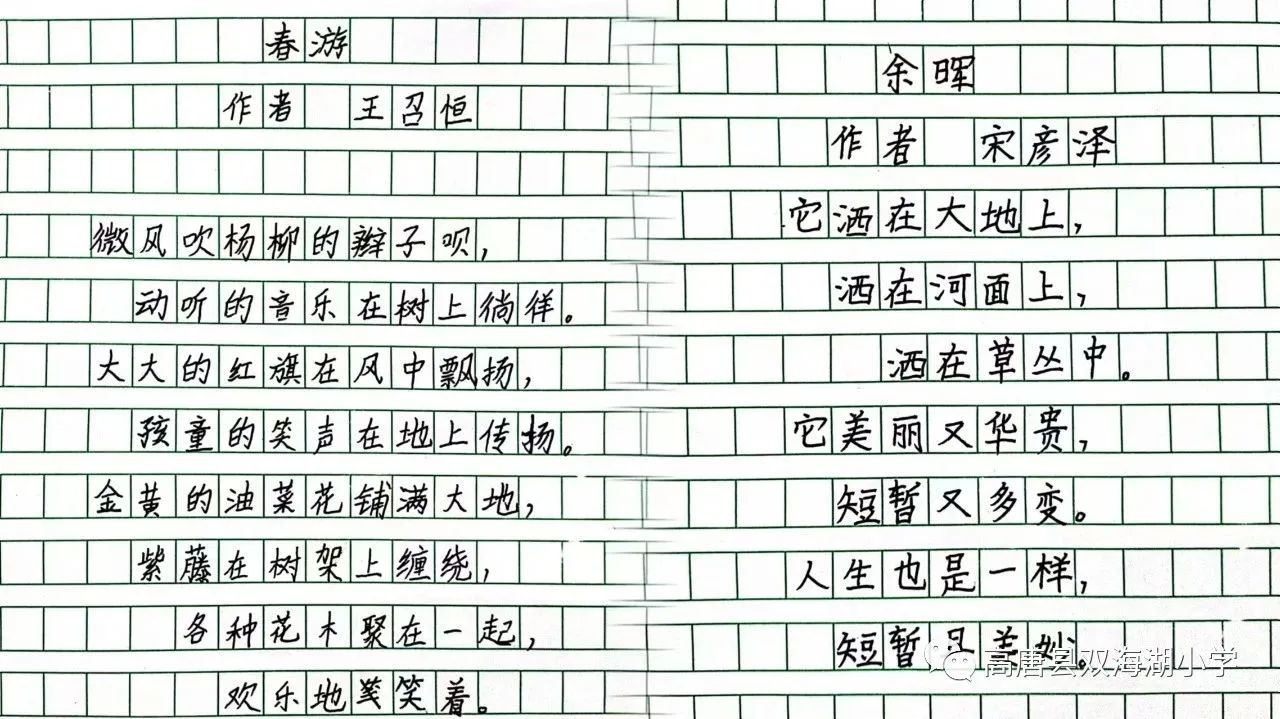 春游
作者 王召恒
微风吹杨柳的辫子呗,
动听的音乐在树上徜徉。
大大的红旗在风中飘扬,
孩童的笑声在地上传扬。
金黄的油菜花铺满大地,
紫藤在树架上缠绕,
各种花木聚在一起,
欢乐地笑着。
余晖
作者 宋彦泽
它洒在大地上,
洒在河面上,
洒在草丛中。
它美丽又华贵,
短暂又多变。
人生也是一样,
短暂且美妙。
高唐县双海湖小学